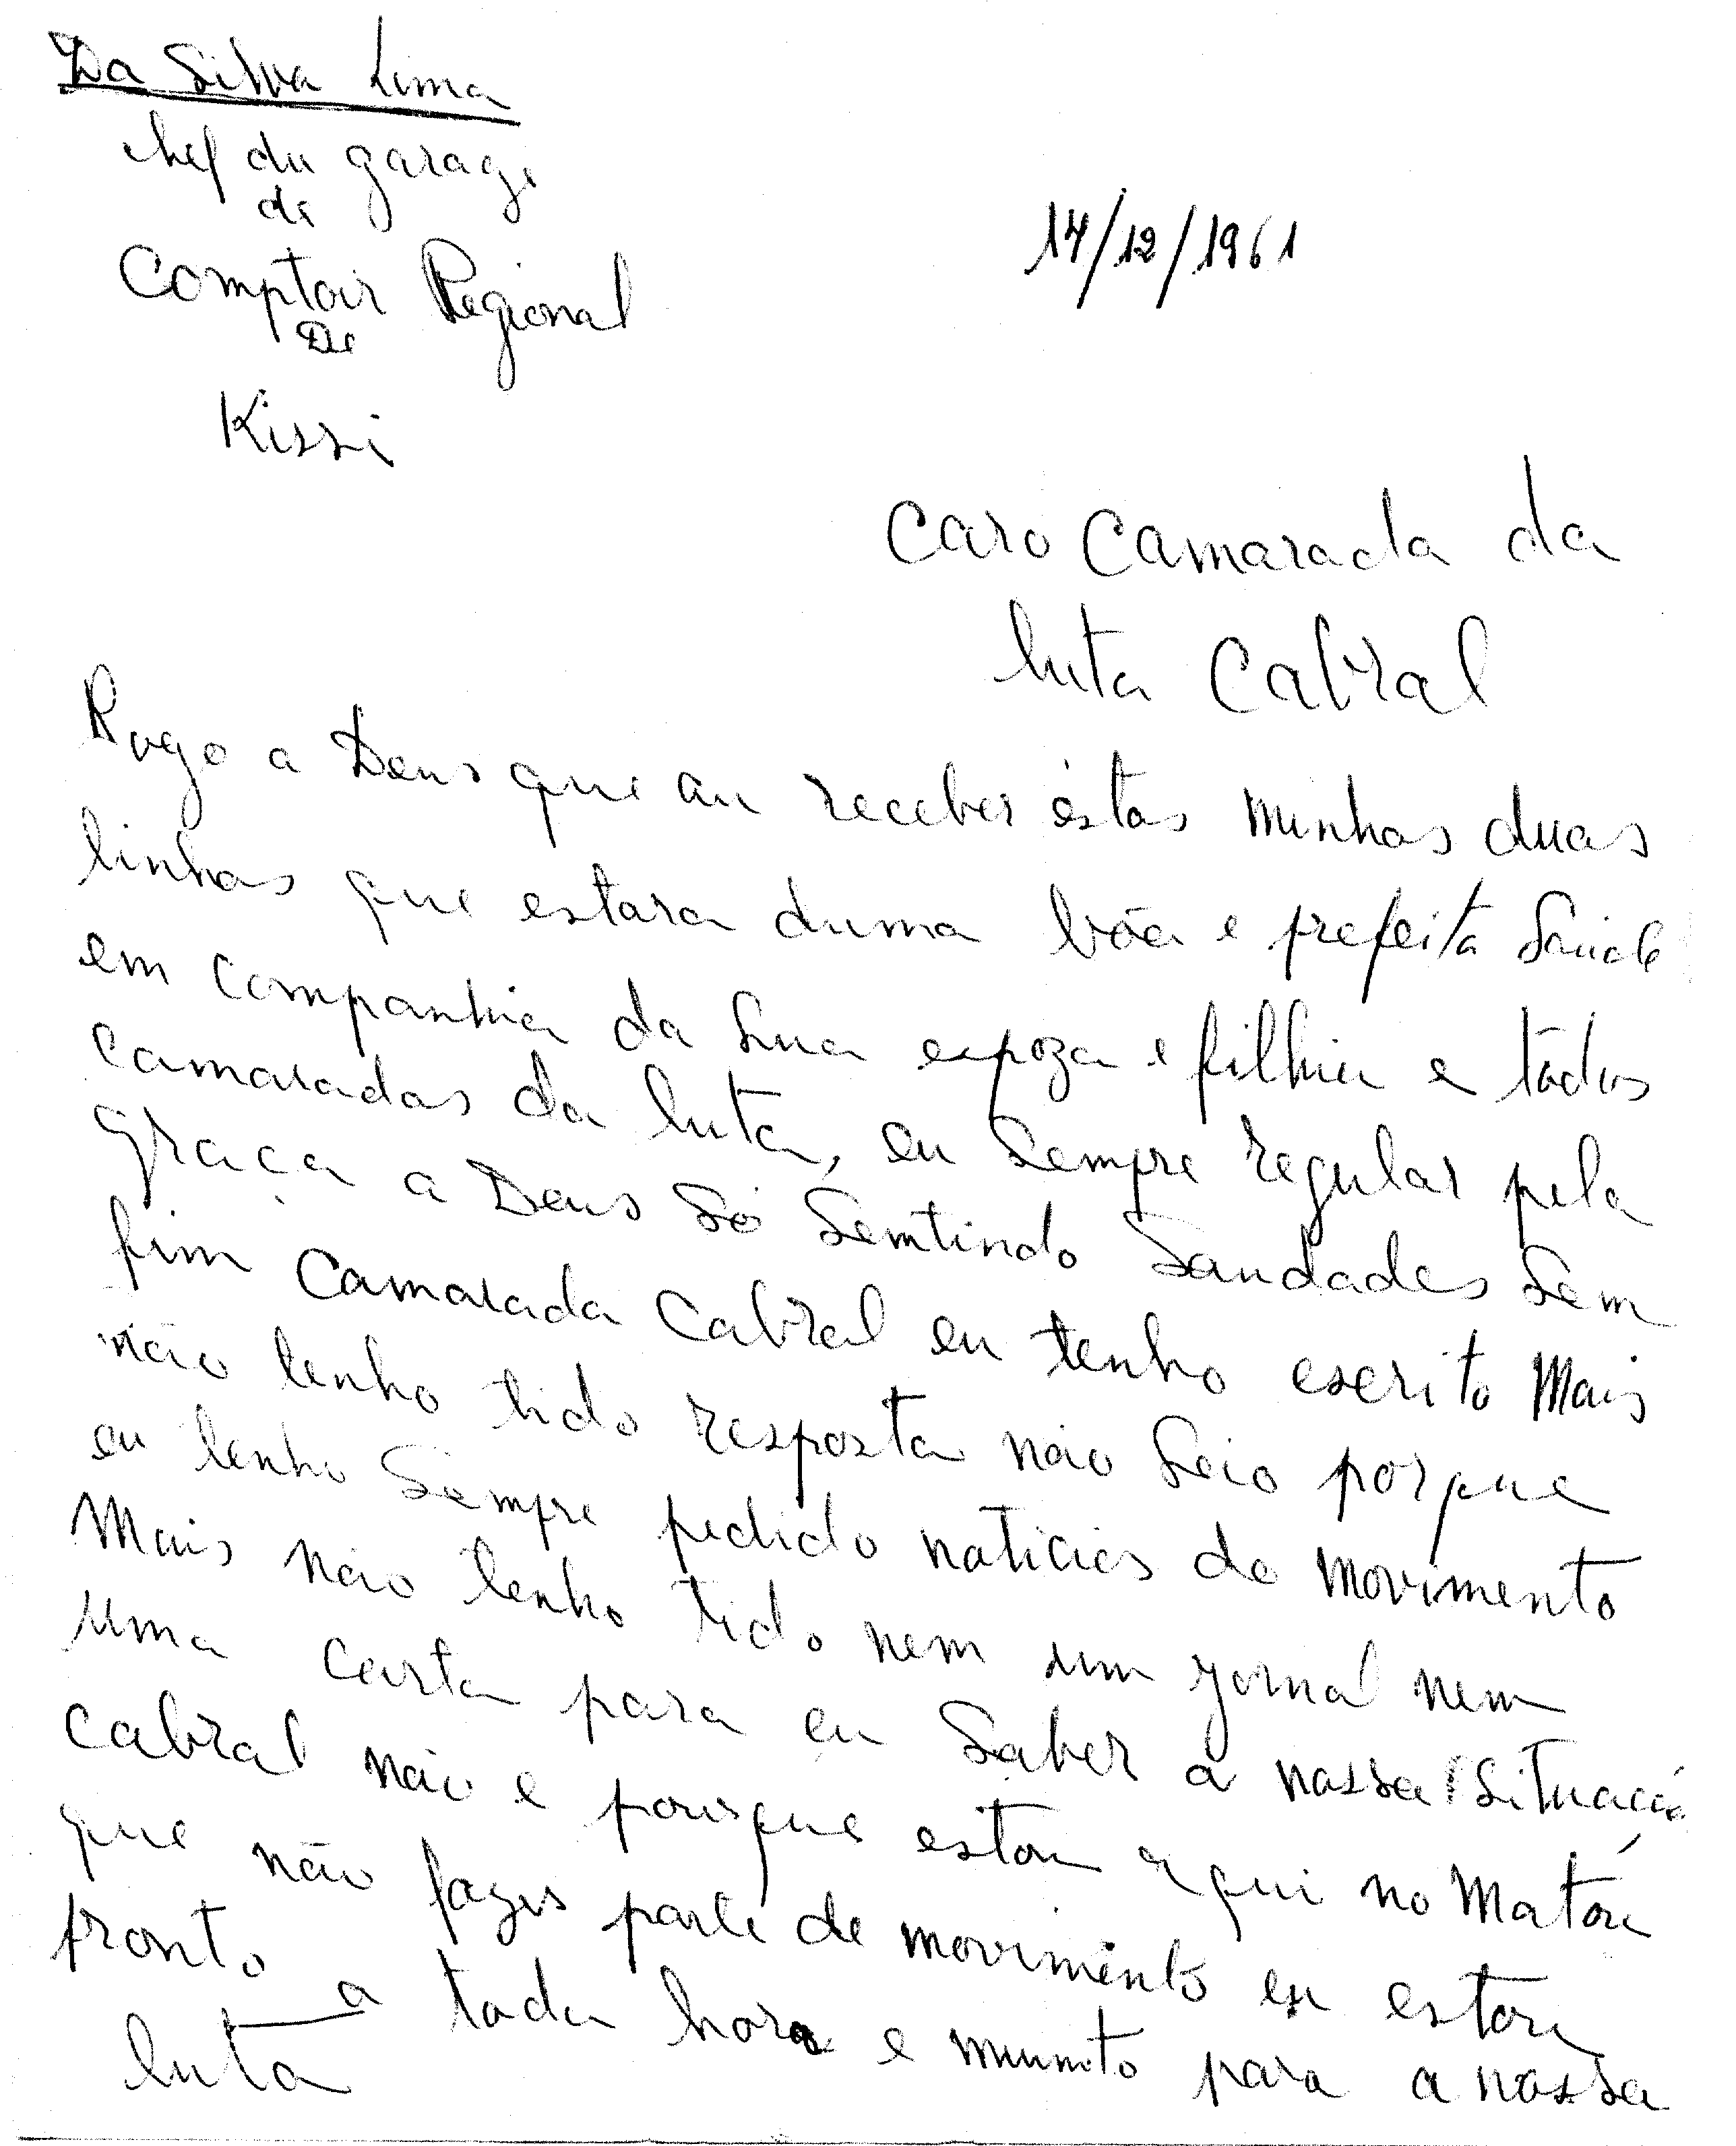 Da Silva Lima
chef du garage
de
Comptoir Regional
De
Kissi
14/12/1961
Caro Camarada da
luta Cabral
Rogo a Deus que au receber éstas minhas duas
linhas que estara duma bôa e prefeita Saúde
em companhia da Sua espoza e filhia e tôdos
camaradas da luta, eu Sempre regular pela
graça a Deus Só Semtindo Saudades Sem
fim Camarada Cabral eu tenho escrito Mais
não tenho tido resposta não Seio porque
eu tenho Sempre pedido naticias do Movimento
Mais não tenho tido nem um jornal nem
uma carta para eu Saber a nassa Situaçáo
Cabral não e pourque estou aqui no Matóu
que não fazes parte de movimento eu estou
pronto a toda hora e minuto para a nassa
luta